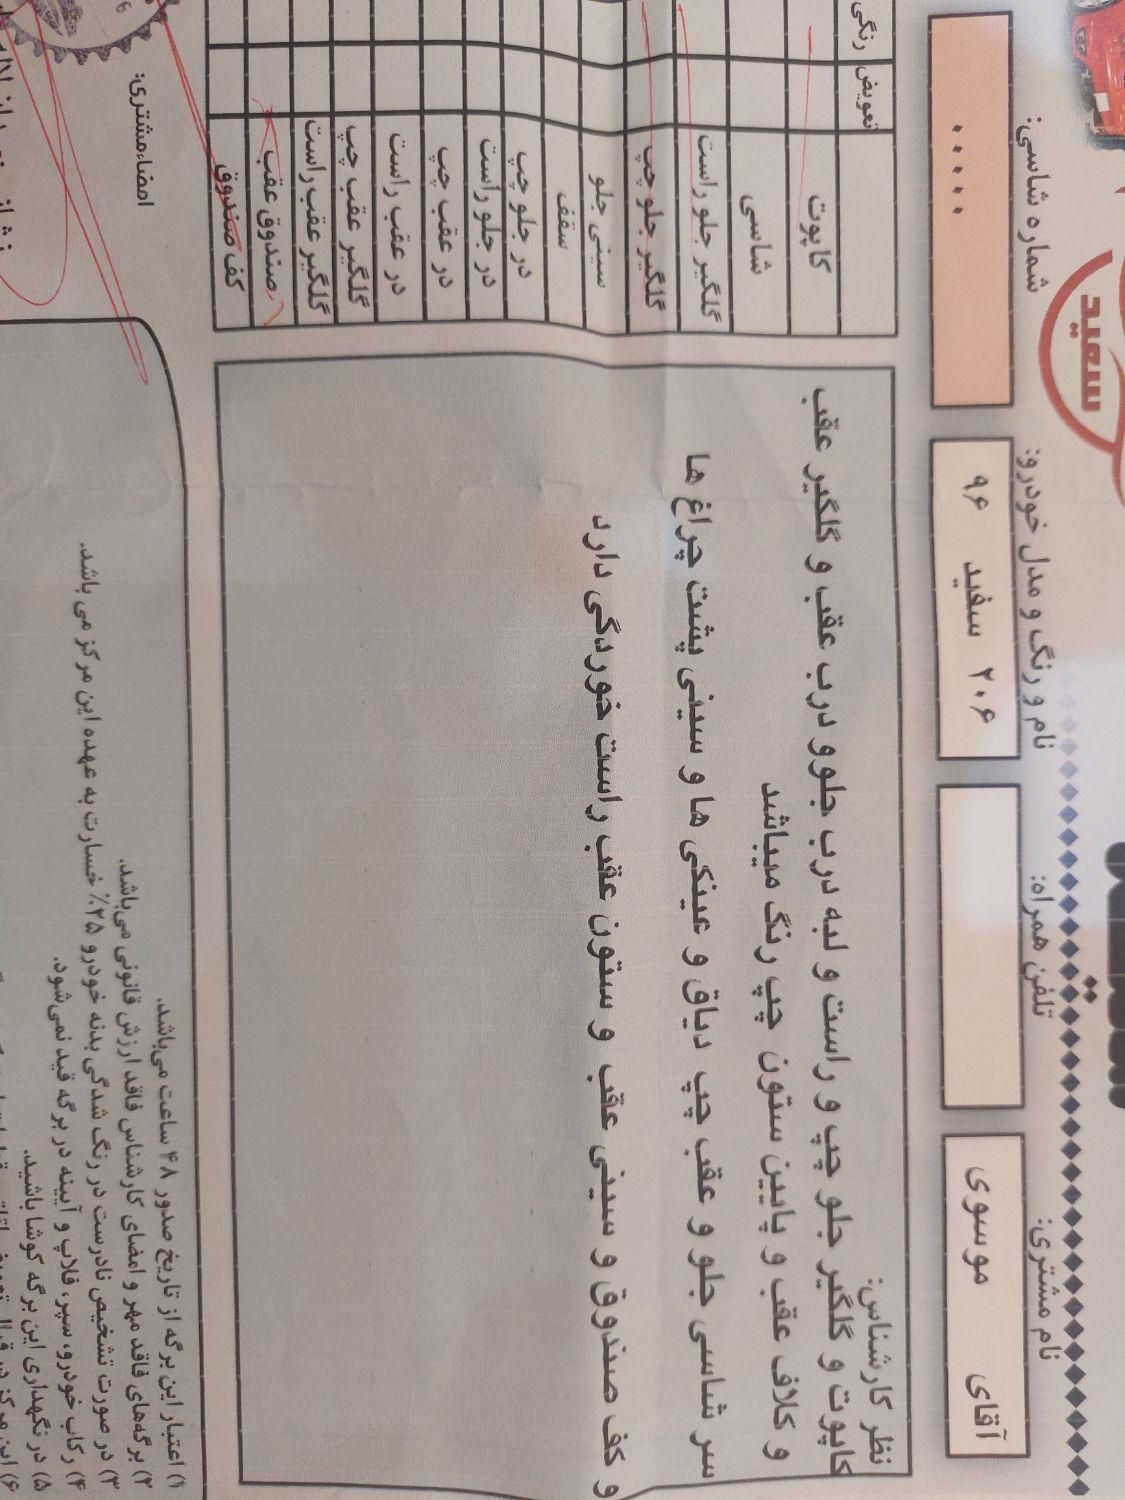 سعید
نام مشتری:
آقای موسوی
تلفن همراه:
نام و رنگ و مدل خودرو:
۲۰۶ سفید ۹۶
شماره شاسی:
۰۰۰۰۰
نظر کارشناس:
کاپوت و گلگیر جلو چپ و راست و لبه درب جلوو درب عقب و گلگیر عقب
و کلاف عقب و پایین ستون چپ رنگ میباشد
سر شاسی جلو و عقب چپ دیاق و عینکی ها و سینی پشت چراغ ها
و کف صندوق و سینی عقب و ستون عقب راست خوردگی دارد
تعویض رنگی
کاپوت
شاسی
گلگیر جلو راست
گلگیر جلو چپ
سینی جلو
سقف
در جلو چپ
در جلو راست
در عقب چپ
در عقب راست
گلگیر عقب چپ
گلگیر عقب راست
صندوق عقب
کف صندوق
امضاءمشتری:
۱) اعتبار این برگه از تاریخ صدور ۴۸ ساعت می‌باشد.
۲) برگه‌های فاقد مهر و امضای کارشناس فاقد ارزش قانونی می‌باشد.
۳) در صورت تشخیص نادرست در رنگ شدگی بدنه خودرو ۲۵٪ خسارت به عهده این مرکز می باشد.
۴) رکاب خودرو، سپر، قلاپ و آیینه در برگه قید نمی‌شود.
۵) در نگهداری این برگه کوشا باشید.
۶) این مرکز در قبال تعویض